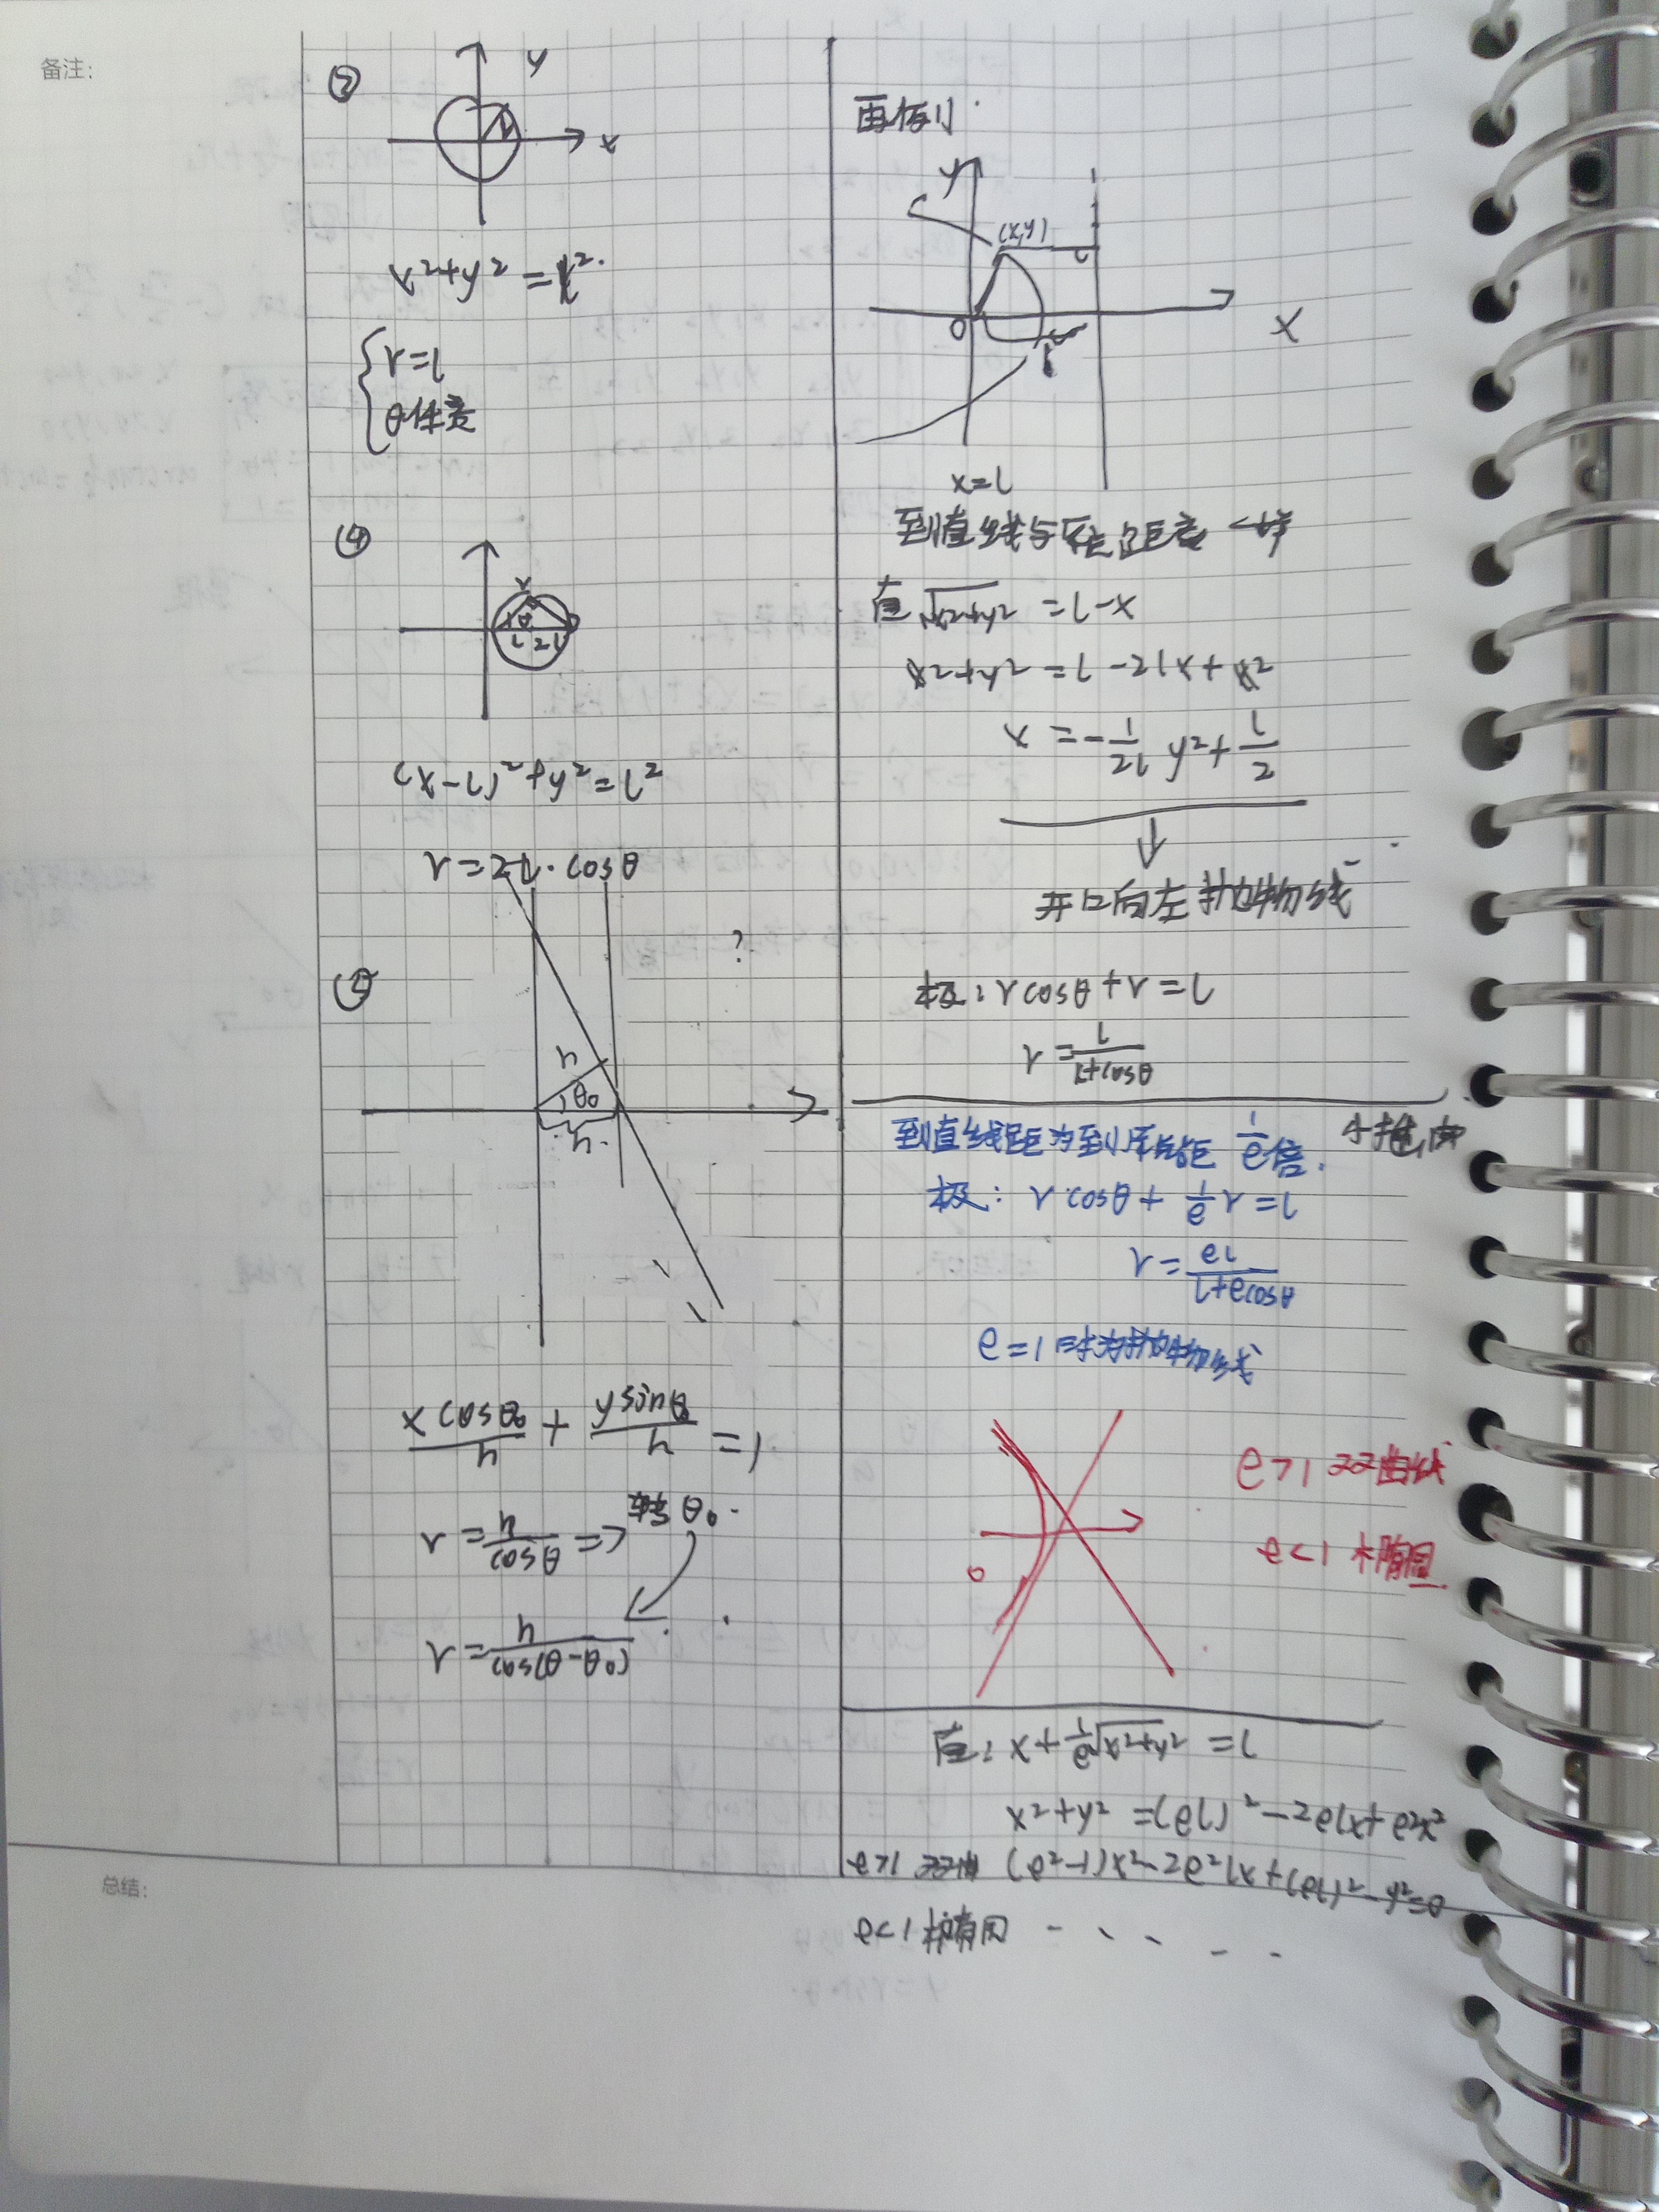 备注:
③
y
x
x²+y²=l².
{ r=l
θ任意
④
r
θ
l 2l
(x-l)²+y²=l²
r=2l·cosθ
?
⑤
h
θ₀
h.
x cosθ₀/h + y sinθ₀/h =1
r=h/cosθ => 转θ₀.
r=h/cos(θ-θ₀)
再例:
y
(x,y)
O
x
x=l
到直线与原点距离一样
直 √x²+y² =l-x
x²+y²=l-2lx+x²
x=-1/2l y²+l/2
开口向左抛物线
极: rcosθ+r=l
r=l/1+cosθ
到直线距为到原点距 1/e倍. 个推广
极: r cosθ+1/e r=l
r=el/1+ecosθ
e=1时为抛物线
e>1 双曲线
e<1 椭圆
o
直: x+1/e√x²+y² =l
x²+y²=(el)²-2elx+e²x²
e>1 双曲 (e²-1)x²-2e²lx+(el)²-y²=0
e<1 椭圆 - - - - -
总结: